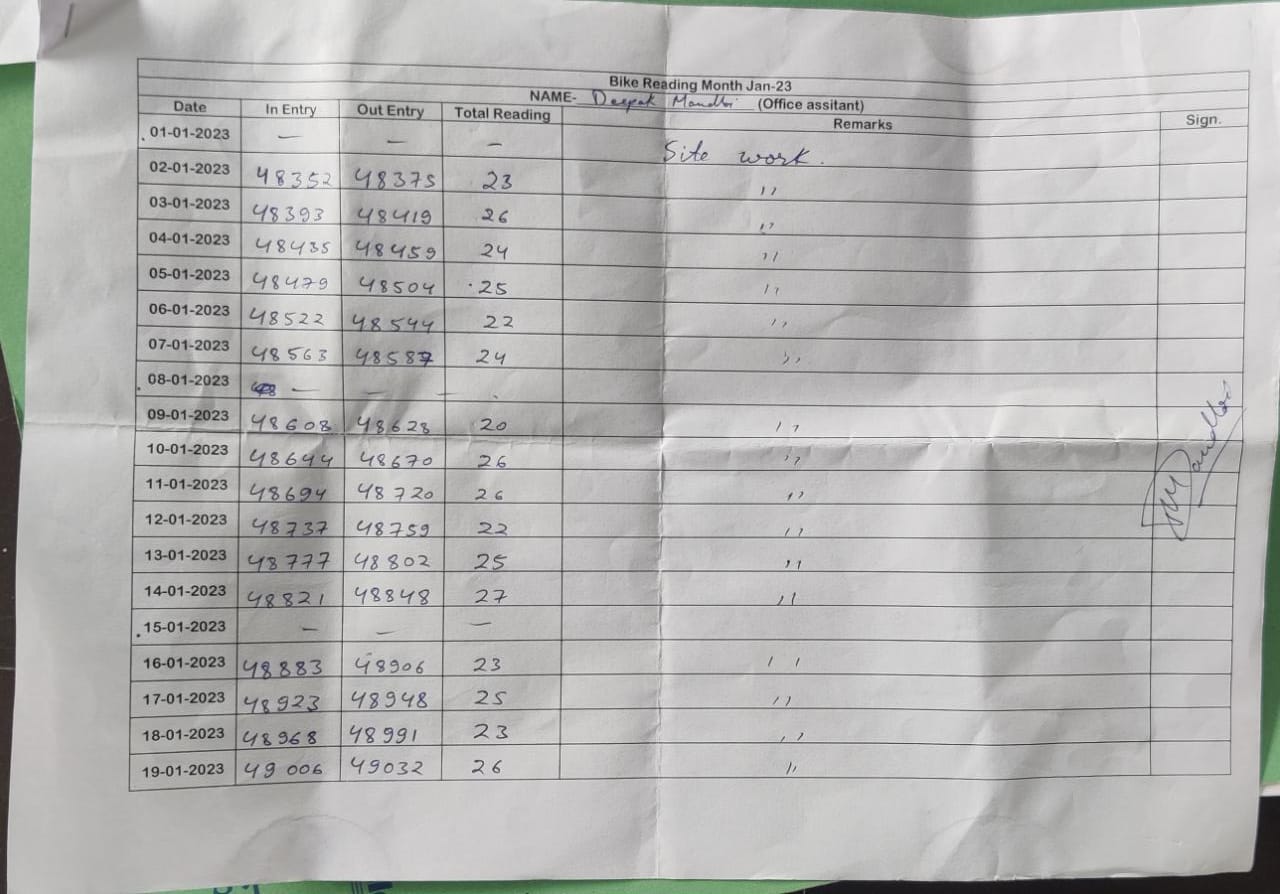 Bike Reading Month Jan-23
NAME- Deepak Mandloi (Office assitant)
Date In Entry Out Entry Total Reading Remarks Sign.
01-01-2023 — — — Site work.
02-01-2023 48352 48375 23 ,,
03-01-2023 48393 48419 26 ,,
04-01-2023 48435 48459 24 ,,
05-01-2023 48479 48504 25 ,,
06-01-2023 48522 48544 22 ,,
07-01-2023 48563 48587 24 ,,
08-01-2023 — — —
09-01-2023 48608 48628 20 ,,
10-01-2023 48644 48670 26 ,,
11-01-2023 48694 48720 26 ,,
12-01-2023 48737 48759 22 ,,
13-01-2023 48777 48802 25 ,,
14-01-2023 48821 48848 27 ,,
15-01-2023 — — —
16-01-2023 48883 48906 23 ,,
17-01-2023 48923 48948 25 ,,
18-01-2023 48968 48991 23 ,,
19-01-2023 49006 49032 26 ,,